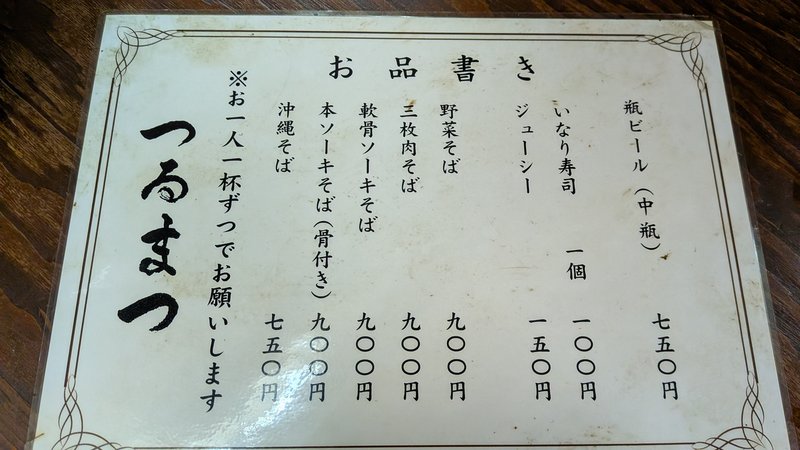 お品書き
瓶ビール（中瓶） 七五〇円
いなり寿司 一個 一〇〇円
ジューシー 一五〇円
野菜そば 九〇〇円
三枚肉そば 九〇〇円
軟骨ソーキそば 九〇〇円
本ソーキそば（骨付き） 九〇〇円
沖縄そば 七五〇円
※お一人一杯ずつでお願いします
つるまつ